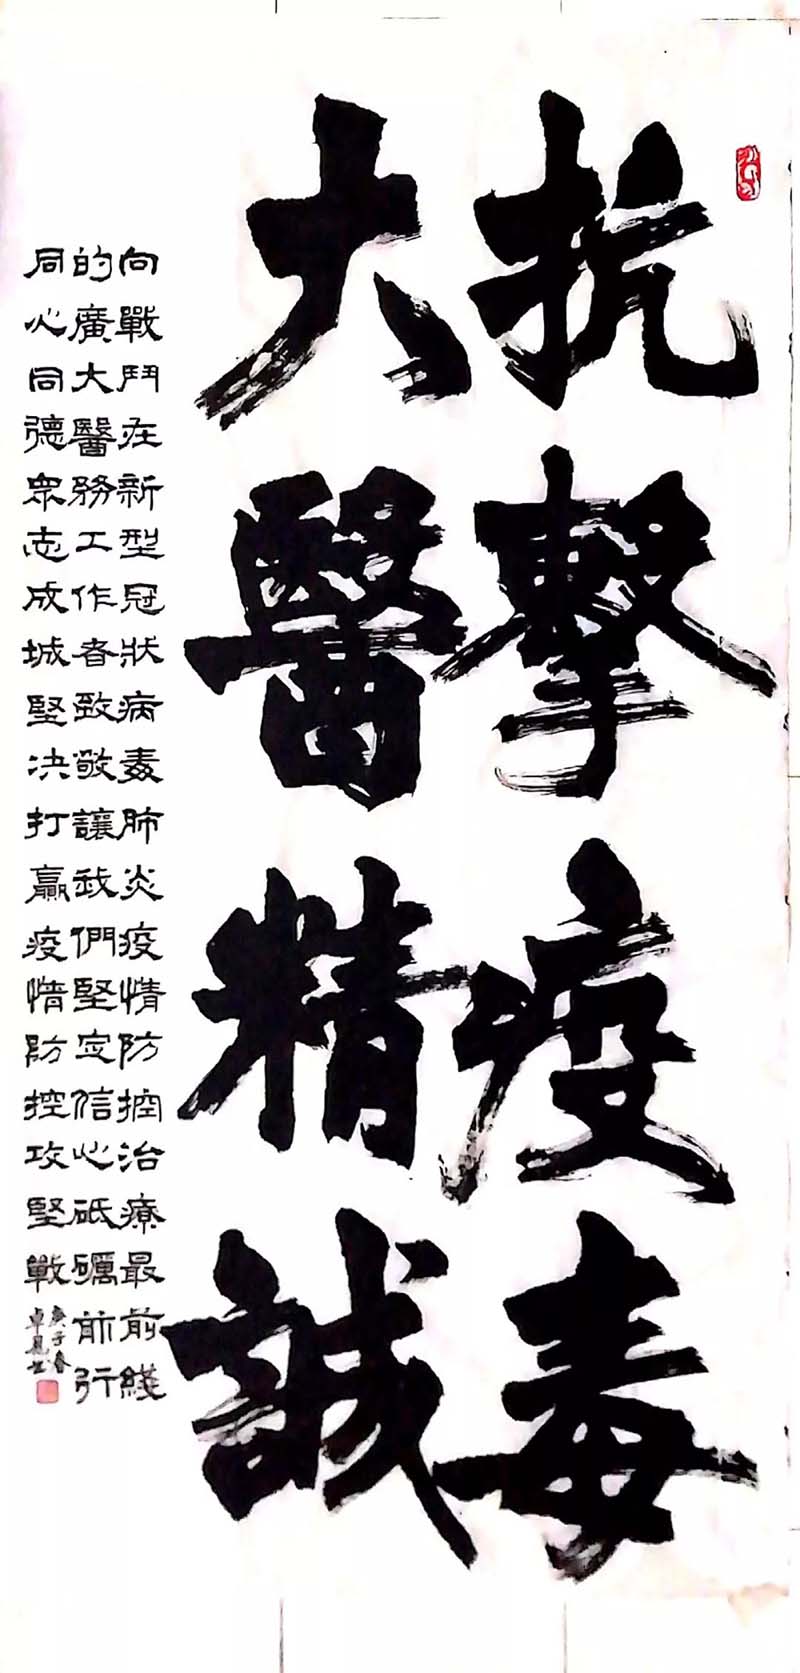 抗擊疫毒
大醫精誠
向戰鬥在新型冠狀病毒肺炎疫情防控治療最前綫
的廣大醫務工作者致敬讓我們堅定信心砥礪前行
同心同德眾志成城堅决打贏疫情防控攻堅戰
庚子春